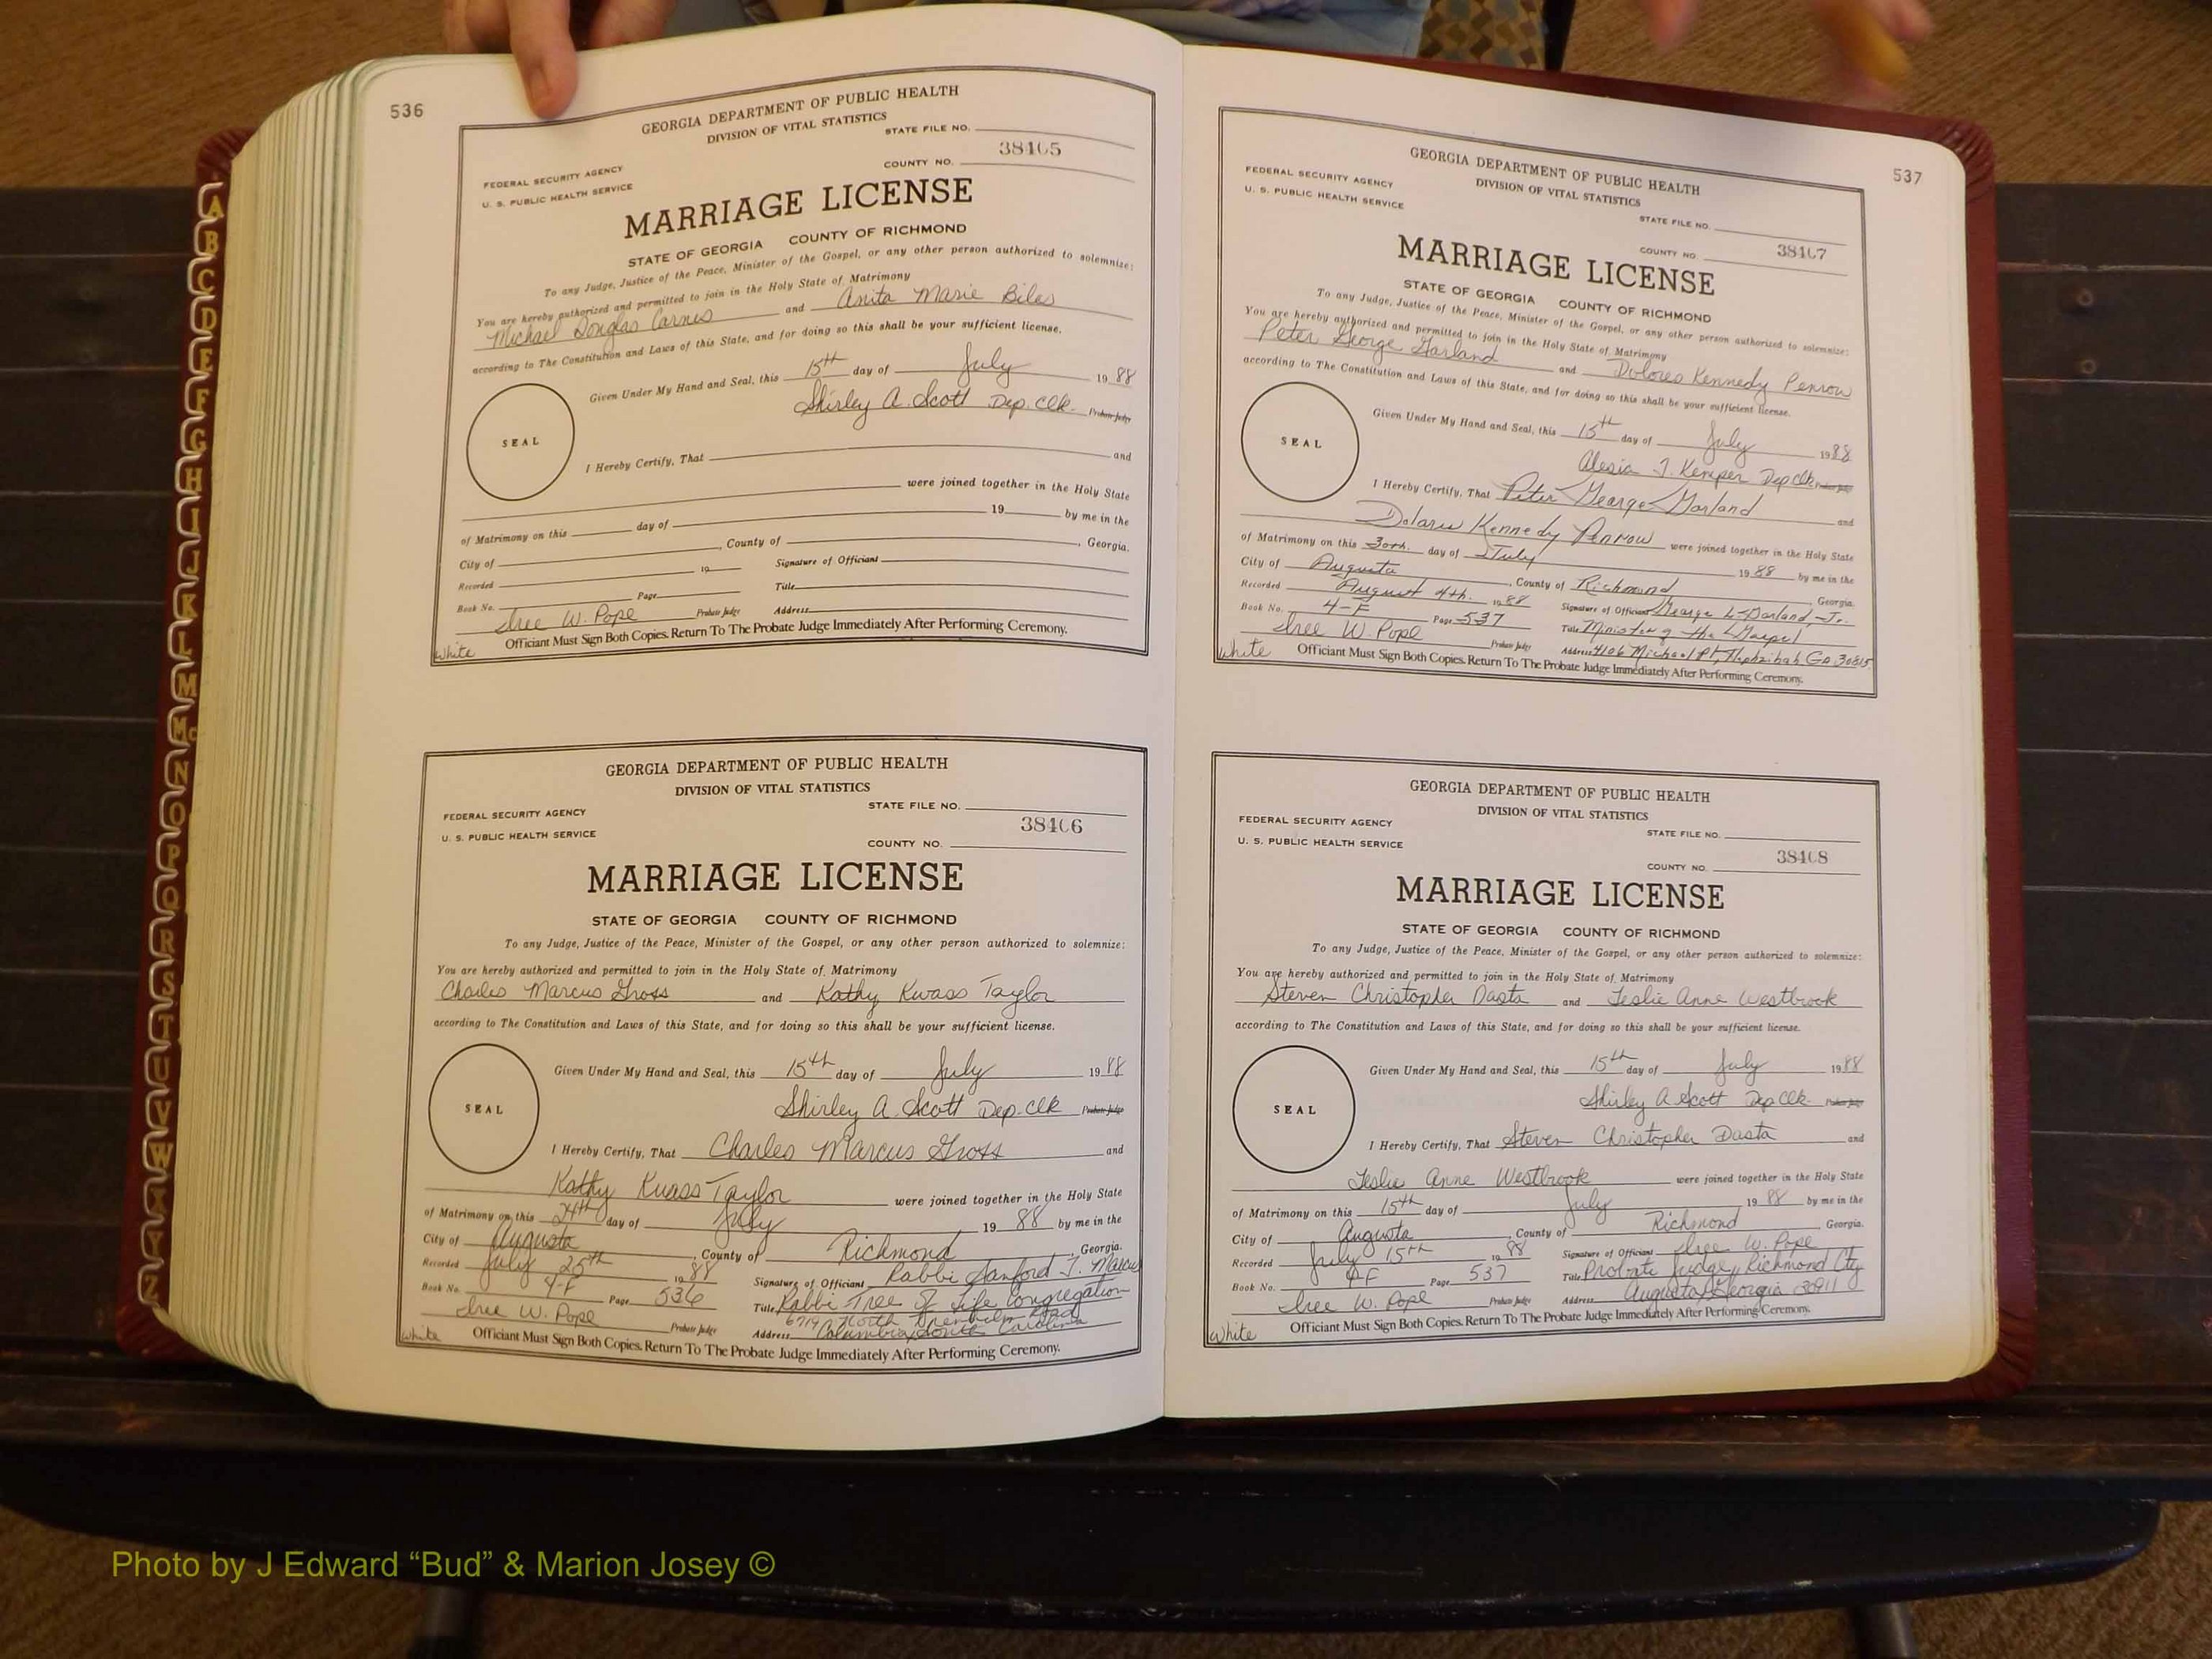 536
GEORGIA DEPARTMENT OF PUBLIC HEALTH
DIVISION OF VITAL STATISTICS
STATE FILE NO.
38405
COUNTY NO.
FEDERAL SECURITY AGENCY
U. S. PUBLIC HEALTH SERVICE
MARRIAGE LICENSE
STATE OF GEORGIA COUNTY OF RICHMOND
To any Judge, Justice of the Peace, Minister of the Gospel, or any other person authorized to solemnize:
You are hereby authorized and permitted to join in the Holy State of Matrimony
Michael Douglas Carnes and Anita Marie Biles
according to The Constitution and Laws of this State, and for doing so this shall be your sufficient license.
Given Under My Hand and Seal, this 15th day of July 1988
Shirley A. Scott Dep. Clk. Probate Judge
SEAL
I Hereby Certify, That and
were joined together in the Holy State
of Matrimony on this day of 19 by me in the
City of , County of , Georgia.
Recorded 19 Signature of Officiant
Book No. Page Title
W. Pope Probate Judge Address
White Officiant Must Sign Both Copies. Return To The Probate Judge Immediately After Performing Ceremony.
GEORGIA DEPARTMENT OF PUBLIC HEALTH
DIVISION OF VITAL STATISTICS
FEDERAL SECURITY AGENCY STATE FILE NO.
38406
U. S. PUBLIC HEALTH SERVICE COUNTY NO.
MARRIAGE LICENSE
STATE OF GEORGIA COUNTY OF RICHMOND
To any Judge, Justice of the Peace, Minister of the Gospel, or any other person authorized to solemnize:
You are hereby authorized and permitted to join in the Holy State of Matrimony
Charles Marcus Gross and Kathy Kwass Taylor
according to The Constitution and Laws of this State, and for doing so this shall be your sufficient license.
Given Under My Hand and Seal, this 15th day of July 1988
Shirley A. Scott Dep. Clk Probate Judge
SEAL
I Hereby Certify, That Charles Marcus Gross and
Kathy Kwass Taylor were joined together in the Holy State
of Matrimony on this 24th day of July 1988 by me in the
City of Augusta, County of Richmond, Georgia.
Recorded July 25th 1988 Signature of Officiant Rabbi Sanford T. Marcus
Book No. 4-F Page 536 Title Rabbi Tree of Life Congregation
6719 North Road
W. Pope Probate Judge Address Columbia, South Carolina
White Officiant Must Sign Both Copies. Return To The Probate Judge Immediately After Performing Ceremony.
537
GEORGIA DEPARTMENT OF PUBLIC HEALTH
DIVISION OF VITAL STATISTICS
FEDERAL SECURITY AGENCY
U. S. PUBLIC HEALTH SERVICE
STATE FILE NO.
38407
COUNTY NO.
MARRIAGE LICENSE
STATE OF GEORGIA COUNTY OF RICHMOND
To any Judge, Justice of the Peace, Minister of the Gospel, or any other person authorized to solemnize:
You are hereby authorized and permitted to join in the Holy State of Matrimony
Peter George Garland and Dolores Kennedy Penrow
according to The Constitution and Laws of this State, and for doing so this shall be your sufficient license.
Given Under My Hand and Seal, this 15th day of July 1988
Alesia J. Kemper Dep Clk Probate Judge
SEAL
I Hereby Certify, That Peter George Garland and
Dolares Kennedy Penrow were joined together in the Holy State
of Matrimony on this 30th. day of July 1988 by me in the
City of Augusta, County of Richmond Georgia.
Recorded August 4th. 1988 Signature of Officiant George L. Garland, Jr.
Book No. 4-F Page 537 Title Minister of the Gospel
W. Pope Probate Judge Address 4106 Michael Pl, Hephzibah Ga 30815
White Officiant Must Sign Both Copies. Return To The Probate Judge Immediately After Performing Ceremony.
GEORGIA DEPARTMENT OF PUBLIC HEALTH
DIVISION OF VITAL STATISTICS
FEDERAL SECURITY AGENCY STATE FILE NO.
38408
U. S. PUBLIC HEALTH SERVICE COUNTY NO.
MARRIAGE LICENSE
STATE OF GEORGIA COUNTY OF RICHMOND
To any Judge, Justice of the Peace, Minister of the Gospel, or any other person authorized to solemnize:
You are hereby authorized and permitted to join in the Holy State of Matrimony
Steven Christopher Dasta and Leslie Anne Westbrook
according to The Constitution and Laws of this State, and for doing so this shall be your sufficient license.
Given Under My Hand and Seal, this 15th day of July 1988
Shirley A Scott Dep Clk. Probate Judge
SEAL
I Hereby Certify, That Steven Christopher Dasta and
Leslie Anne Westbrook were joined together in the Holy State
of Matrimony on this 15th day of July 1988 by me in the
City of Augusta, County of Richmond Georgia.
Recorded July 15th 1988 Signature of Officiant W. Pope
Book No. 4F Page 537 Title Probate Judge, Richmond Cty
W. Pope Probate Judge Address Augusta, Georgia 30911
White Officiant Must Sign Both Copies. Return To The Probate Judge Immediately After Performing Ceremony.
A
B
C
D
E
F
G
H
I
J
K
L
M
Mc
N
O
P
Q
R
S
T
U
V
W
X
Y
Z
Photo by J Edward “Bud” & Marion Josey ©